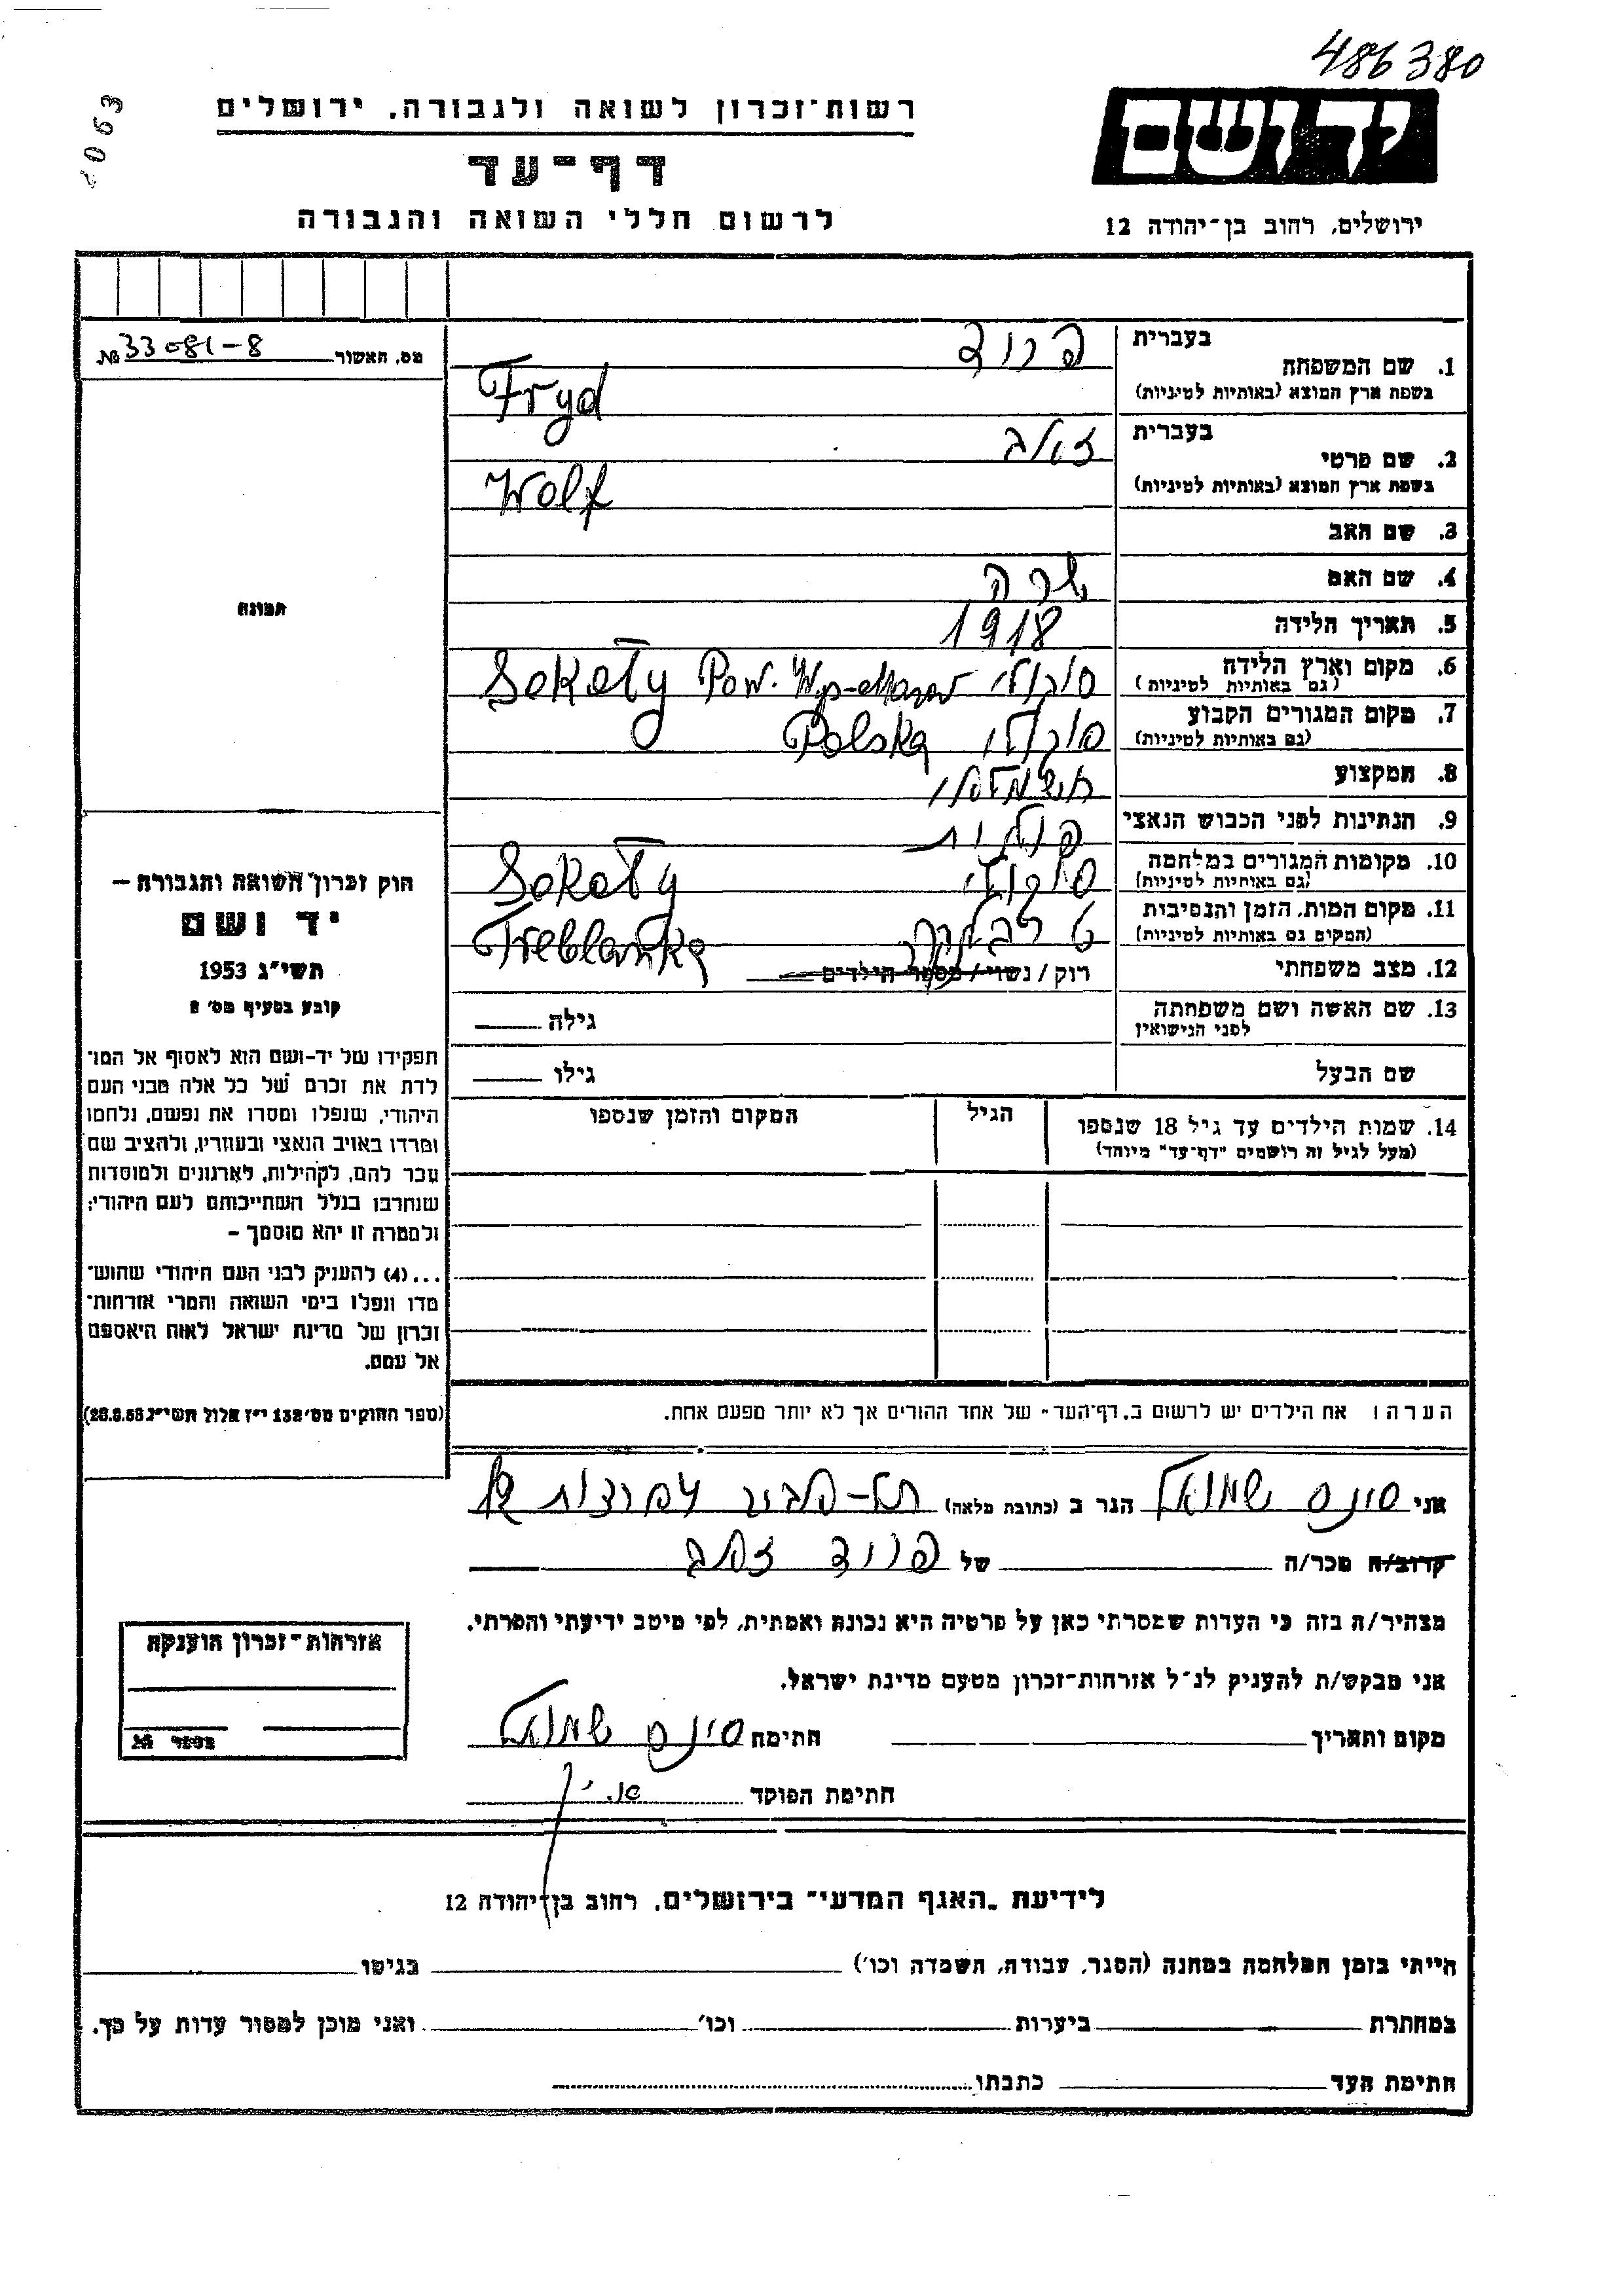 486380
2063
רשות־זכרון לשואה ולגבורה, ירושלים
יד ושם
דף־עד
לרשום חללי השואה והגבורה
ירושלים, רחוב בן־יהודה 12
מס. האשור № 33081-8
בעברית פריד
1. שם המשפחה
בשפת ארץ המוצא (באותיות לטיניות) Fryd
בעברית זאב
2. שם פרטי
בשפת ארץ המוצא (באותיות לטיניות) Wolf
3. שם האב
4. שם האם שרה
5. תאריך הלידה 1918
6. מקום וארץ הלידה
(גם באותיות לטיניות) סוקולי Sokoły Pow. Wys-Mazow
7. מקום המגורים הקבוע
(גם באותיות לטיניות) סוקולי Polska
8. המקצוע חשמלאי
9. הנתינות לפני הכבוש הנאצי פולנית
10. מקומות המגורים במלחמה
(גם באותיות לטיניות) סוקולי Sokoły
11. מקום המות, הזמן והנסיבות
(המקום גם באותיות לטיניות) טרבלינקה Treblanka
12. מצב משפחתי רוק / נשוי / מספר הילדים
13. שם האשה ושם משפחתה
לפני הנישואין גילה
שם הבעל גילו
14. שמות הילדים עד גיל 18 שנספו הגיל המקום והזמן שנספו
(מעל לגיל זה רושמים "דף־עד" מיוחד)
תמונה
חוק זכרון השואה והגבורה —
יד ושם
תשי"ג 1953
קובע בסעיף מס' 2
תפקידו של יד-ושם הוא לאסוף אל המו־
לדת את זכרם של כל אלה מבני העם
היהודי, שנפלו ומסרו את נפשם, נלחמו
ומרדו באויב הנאצי ובעוזריו, ולהציב שם
וזכר להם, לקהילות, לארגונים ולמוסדות
שנחרבו בגלל השתייכותם לעם היהודי;
ולמטרה זו יהא מוסמך —
...(4) להעניק לבני העם היהודי שהוש־
מדו ונפלו בימי השואה והמרי אזרחות־
זכרון של מדינת ישראל לאות היאספם
אל עמם.
(ספר החוקים מס' 132 י"ז אלול תשי"ג 28.8.53)
הערה ! את הילדים יש לרשום ב„דף־העד" של אחד ההורים אך לא יותר מפעם אחת.
אני שמואל הגר ב (כתובת מלאה) תל-אביב
קרוב/ה מכר/ה של פריד זאב
מצהיר/ה בזה כי העדות שמסרתי כאן על פרטיה היא נכונה ואמתית, לפי מיטב ידיעתי והכרתי.
אני מבקש/ת להעניק לנ"ל אזרחות־זכרון מטעם מדינת ישראל.
מקום ותאריך חתימה שמואל
חתימת הפוקד
אזרחות־זכרון הוענקה
מספר №
לידיעת „האגף המדעי" בירושלים, רחוב בן־יהודה 12
הייתי בזמן המלחמה במחנה (הסגר, עבודה, השמדה וכו') בגיטו
במחתרת ביערות וכו' ואני מוכן למסור עדות על כך.
חתימת העד כתבתו